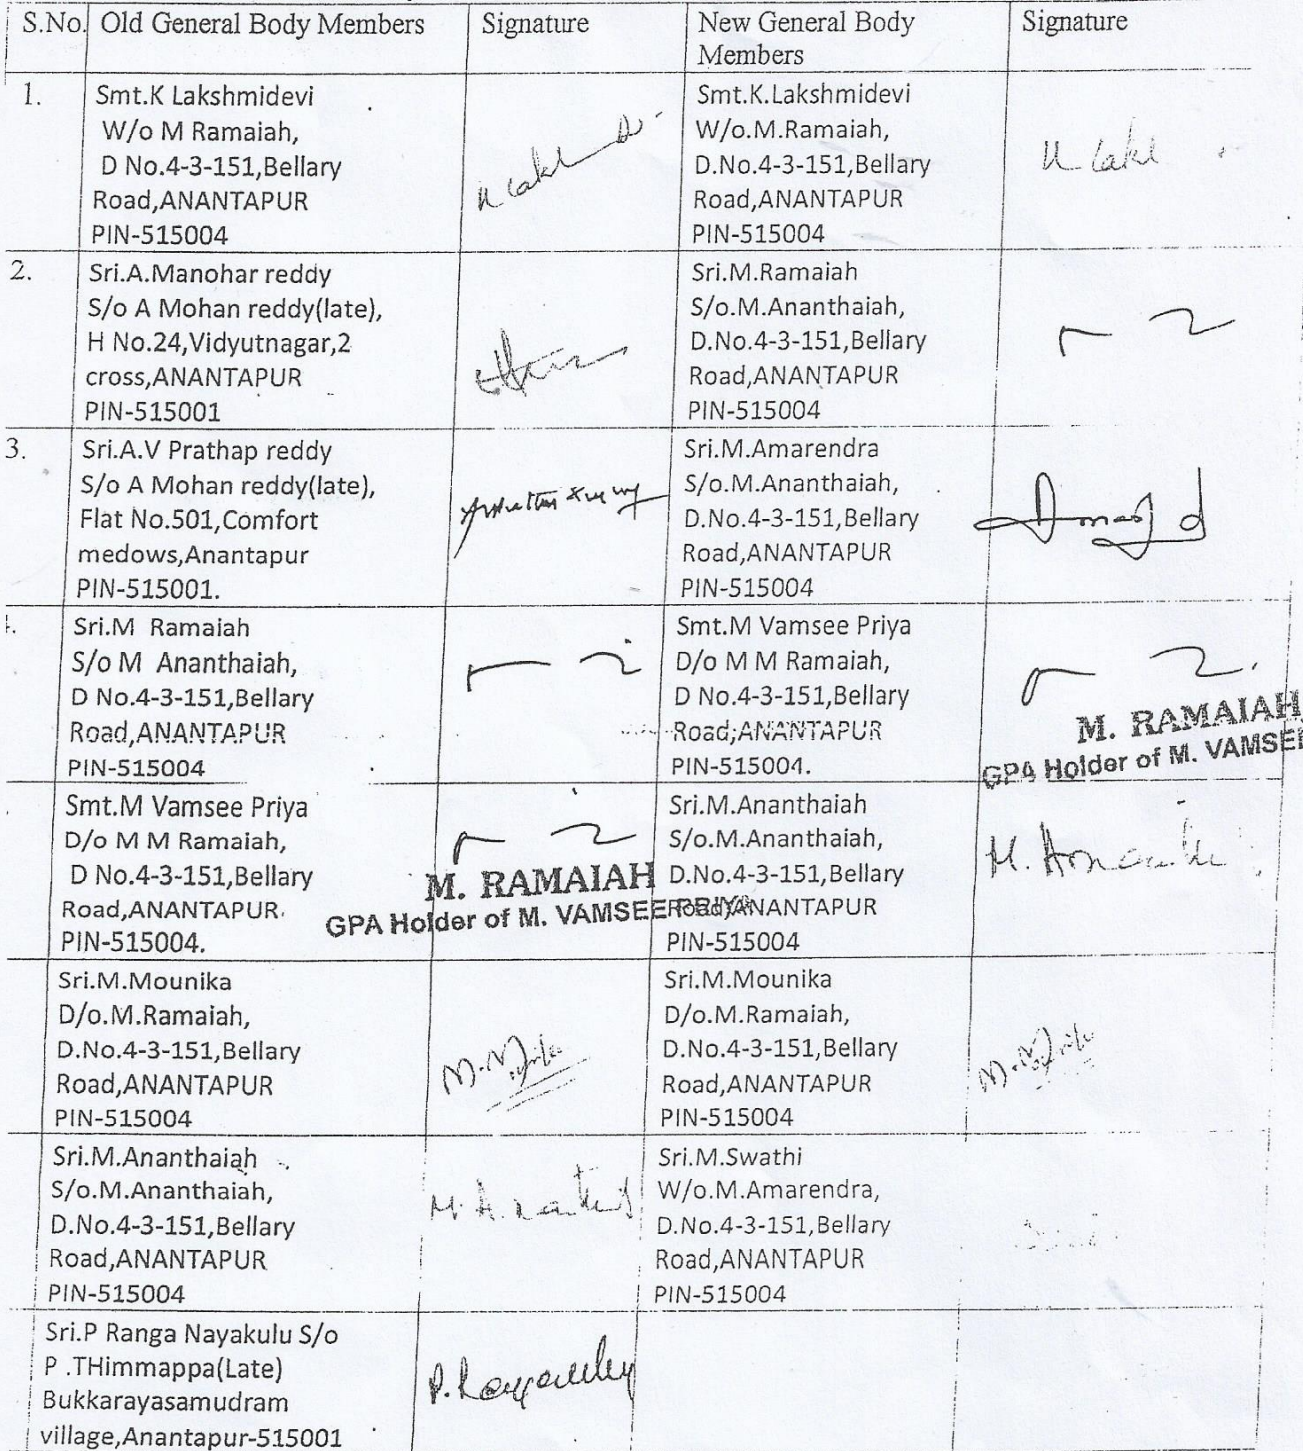 S.No. Old General Body Members Signature New General Body Members Signature
1.
Smt.K Lakshmidevi
W/o M Ramaiah,
D No.4-3-151,Bellary
Road,ANANTAPUR
PIN-515004
Smt.K.Lakshmidevi
W/o.M.Ramaiah,
D.No.4-3-151,Bellary
Road,ANANTAPUR
PIN-515004
2.
Sri.A.Manohar reddy
S/o A Mohan reddy(late),
H No.24,Vidyutnagar,2
cross,ANANTAPUR
PIN-515001
Sri.M.Ramaiah
S/o.M.Ananthaiah,
D.No.4-3-151,Bellary
Road,ANANTAPUR
PIN-515004
3.
Sri.A.V Prathap reddy
S/o A Mohan reddy(late),
Flat No.501,Comfort
medows,Anantapur
PIN-515001.
Sri.M.Amarendra
S/o.M.Ananthaiah,
D.No.4-3-151,Bellary
Road,ANANTAPUR
PIN-515004
Sri.M Ramaiah
S/o M Ananthaiah,
D No.4-3-151,Bellary
Road,ANANTAPUR
PIN-515004
Smt.M Vamsee Priya
D/o M M Ramaiah,
D No.4-3-151,Bellary
Road,ANANTAPUR
PIN-515004.
M. RAMAIAH
GPA Holder of M. VAMSEE
Smt.M Vamsee Priya
D/o M M Ramaiah,
D No.4-3-151,Bellary
Road,ANANTAPUR.
PIN-515004.
M. RAMAIAH
GPA Holder of M. VAMSEE PRIYA
Sri.M.Ananthaiah
S/o.M.Ananthaiah,
D.No.4-3-151,Bellary
Road,ANANTAPUR
PIN-515004
Sri.M.Mounika
D/o.M.Ramaiah,
D.No.4-3-151,Bellary
Road,ANANTAPUR
PIN-515004
Sri.M.Mounika
D/o.M.Ramaiah,
D.No.4-3-151,Bellary
Road,ANANTAPUR
PIN-515004
Sri.M.Ananthaiah
S/o.M.Ananthaiah,
D.No.4-3-151,Bellary
Road,ANANTAPUR
PIN-515004
Sri.M.Swathi
W/o.M.Amarendra,
D.No.4-3-151,Bellary
Road,ANANTAPUR
PIN-515004
Sri.P Ranga Nayakulu S/o
P .THimmappa(Late)
Bukkarayasamudram
village,Anantapur-515001